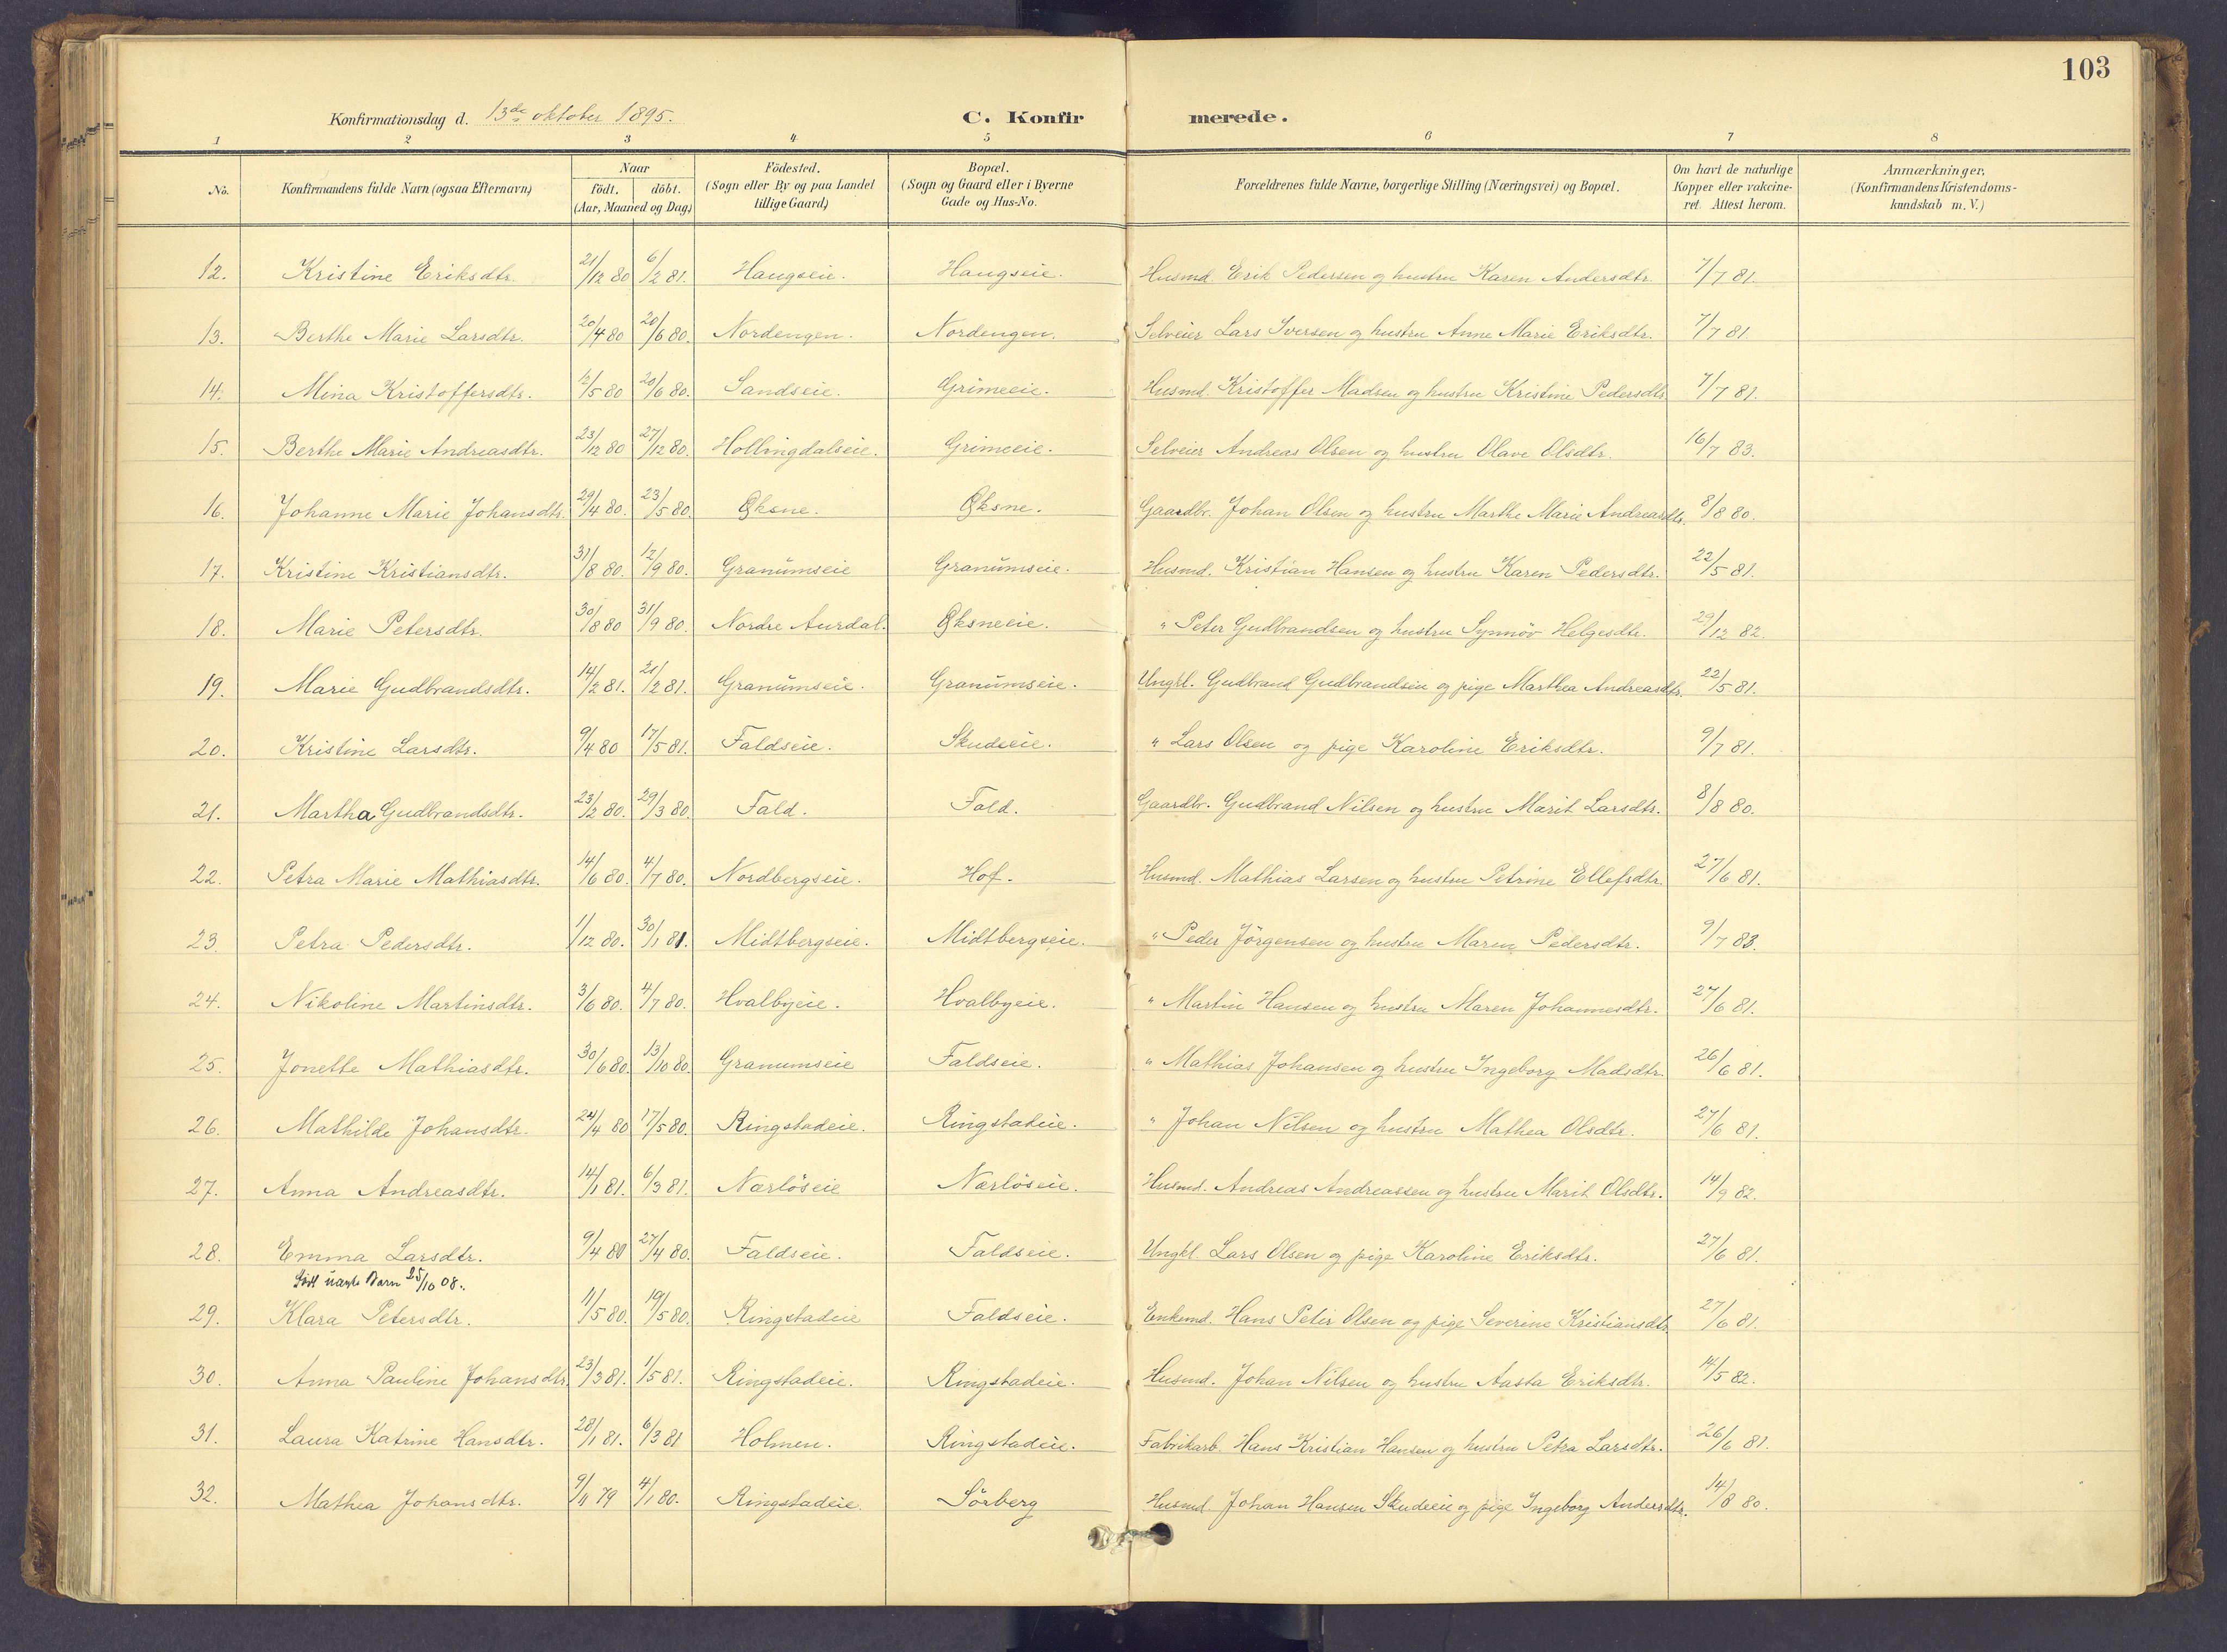 103
Konfirmationsdag d. 13de oktober 1895.
C. Konfirmerede.
1 2 3 4 5 6 7 8
No. Konfirmandens fulde Navn (ogsaa Efternavn) Naar födt. döbt. (Aar, Maaned og Dag) Födested. (Sogn eller By og paa Landet tillige Gaard) Bopæl. (Sogn og Gaard eller i Byerne Gade og Hus-No. Forældrenes fulde Navne, borgerlige Stilling (Næringsvei) og Bopæl. Om havt de naturlige Kopper eller vakcineret. Attest herom. Anmærkninger, (Konfirmandens Kristendomskundskab m. V.)
12. Kristine Eriksdtr. 21/12 80 6/2 81. Haugseie. Haugseie. Husmd. Erik Pedersen og hustru Karen Andersdtr. 7/7 81.
13. Berthe Marie Larsdtr. 20/4 80 20/6 80. Nordengen. Nordengen. Selveier Lars Iversen og hustru Anne Marie Eriksdtr. 7/7 81
14. Mina Kristoffersdtr. 12/5 80 20/6 80. Sandseie. Grimeeie. Husmd. Kristoffer Madsen og hustru Kristine Pedersdtr. 7/7 81.
15. Berthe Marie Andreasdtr. 23/12 80 27/12 80. Hollingdalseie. Grimeeie. Selveier Andreas Olsen og hustru Olave Olsdtr. 16/7 83.
16. Johanne Marie Johansdtr. 29/4 80. 23/5 80. Øksne. Øksne. Gaardbr. Johan Olsen og hustru Marthe Marie Andreasdtr. 8/8 80.
17. Kristine Kristiansdtr. 31/8 80. 12/9 80. Granumseie Granumseie. Husmd. Kristian Hansen og hustru Karen Pedersdtr. 22/5 81.
18. Marie Petersdtr. 30/8 80 31/9 80. Nordre Aurdal. Øksneeie. " Peter Gudbrandsen og hustru Synnöv Helgesdtr. 29/12 82.
19. Marie Gudbrandsdtr. 14/2 81. 21/2 81. Granumseie. Granumseie. Ungkl. Gudbrand Gudbrandsen og pige Marthea Andreasdtr. 22/5 81.
20. Kristine Larsdtr. 9/4 80 17/5 81. Faldseie. Skudseie. " Lars Olsen og pige Karoline Eriksdtr. 9/7 81.
21. Martha Gudbrandsdtr. 23/2 80. 29/3 80. Fald. Fald. Gaardbr. Gudbrand Nilsen og hustru Marit Larsdtr. 8/8 80.
22. Petra Marie Mathiasdtr. 14/6 80. 4/7 80. Nordbergseie. Hof. Husmd. Mathias Larsen og hustru Petrine Ellefsdtr. 27/6 81.
23. Petra Pedersdtr. 1/12 80. 30/1 81. Midtbergseie. Midtbergseie. " Peder Jörgensen og hustru Maren Pedersdtr. 9/7 83.
24. Nikoline Martinsdtr. 3/6 80. 4/7 80. Hvalbyeie. Hvalbyeie. " Martin Hansen og hustru Maren Johannesdtr. 27/6 81.
25. Jonette Mathiasdtr. 30/6 80. 13/10 80. Granumseie Faldseie. " Mathias Johansen og hustru Ingeborg Madsdtr. 26/6 81.
26. Mathilde Johansdtr. 24/4 80 17/5 80. Ringstadeie. Ringstadeie. " Johan Nilsen og hustru Mathea Olsdtr. 27/6 81.
27. Anna Andreasdtr. 14/1 81. 6/3 81. Nærlöseie Nærlöseie. Husmd. Andreas Andreassen og hustru Marit Olsdtr. 14/9 82.
28. Emma Larsdtr. 9/4 80 27/4 80. Faldseie. Faldseie. Ungkl. Lars Olsen og pige Karoline Eriksdtr. 27/6 81.
Født uægte Barn 25/10 08.
29. Klara Petersdtr. 11/5 80. 19/5 80. Ringstadeie Faldseie. Enkemd. Hans Peter Olsen og pige Severine Kristiansdtr. 27/6 81.
30. Anna Pauline Johansdtr. 23/3 81. 1/5 81. Ringstadeie. Ringstadeie. Husmd. Johan Nilsen og hustru Aasta Eriksdtr. 14/5 82.
31. Laura Katrine Hansdtr. 28/1 81. 6/3 81 Holmen. Ringstadeie. Fabrikarb. Hans Kristian Hansen og hustru Petra Larsdtr. 26/6 81.
32. Mathea Johansdtr. 9/11 79 4/1 80. Ringstadeie. Sörberg Husmd. Johan Hansen Skudeeie og pige Ingeborg Andersdtr. 14/8 80.